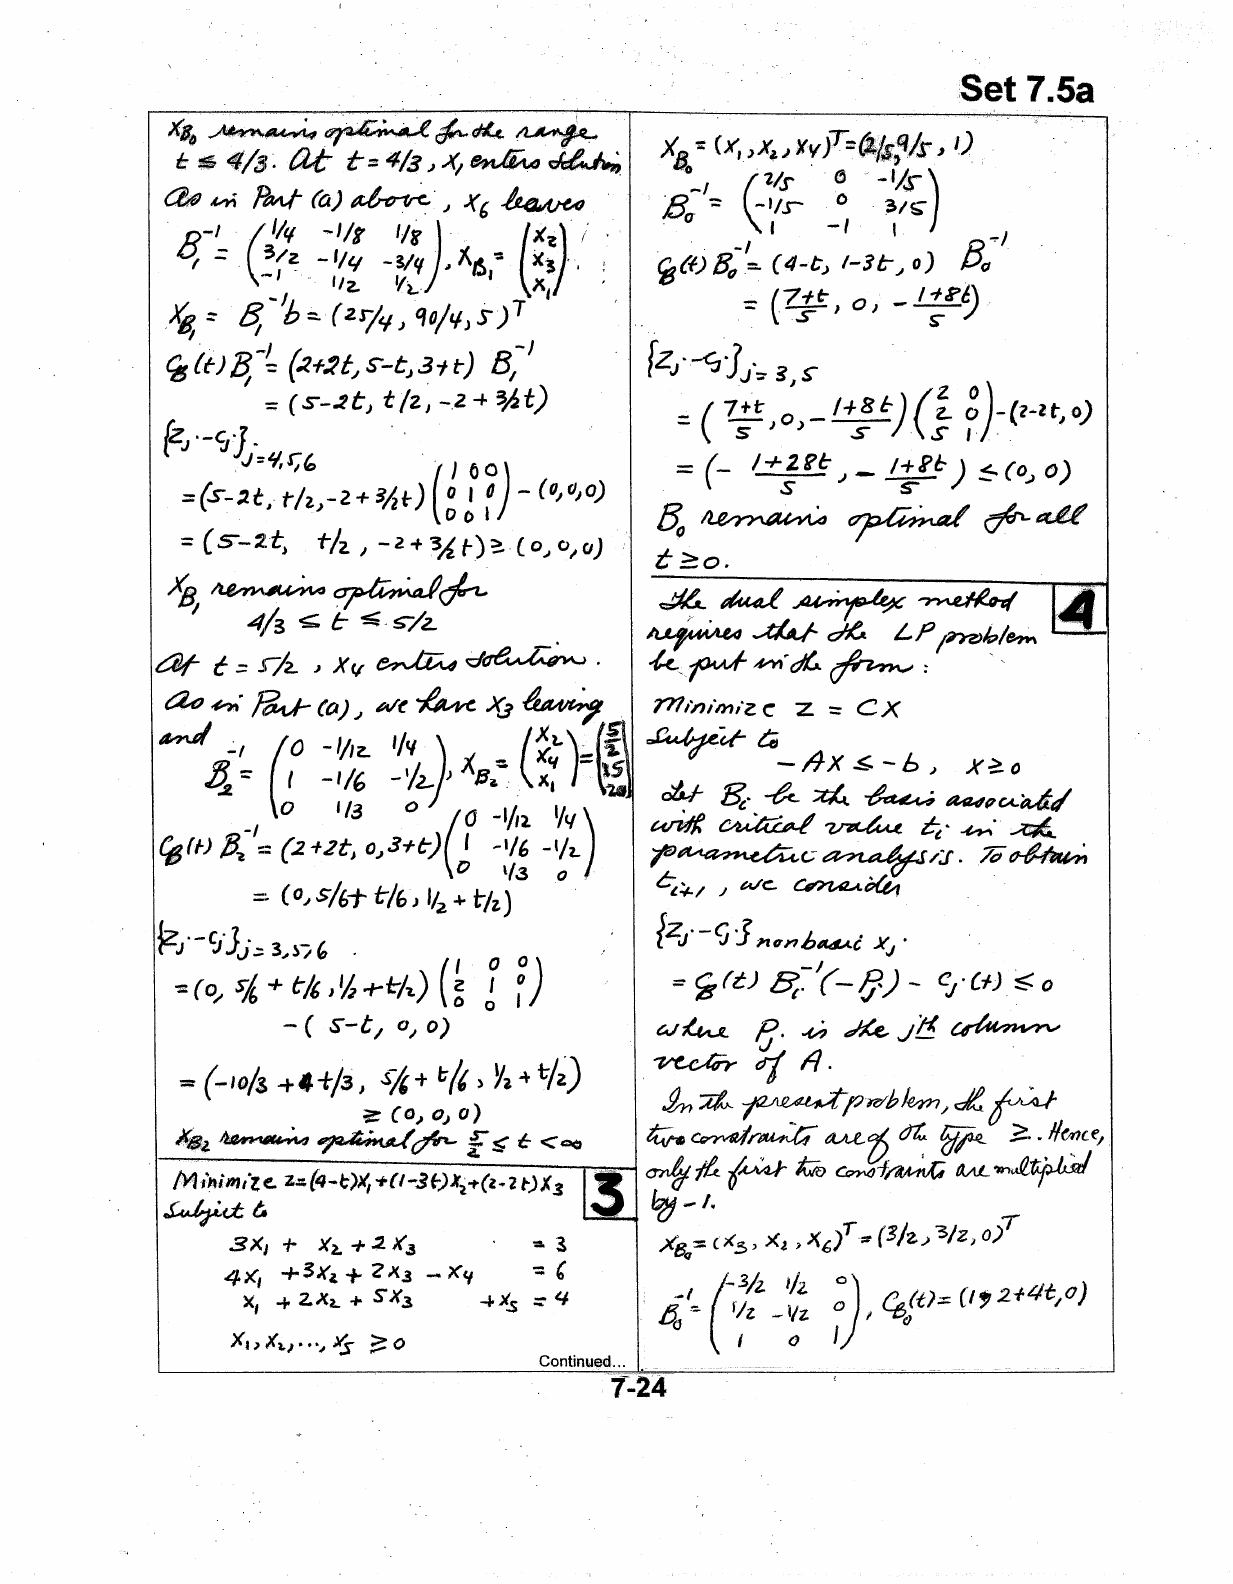 Set 7.5a
X_B0 remains optimal for the range
t ≤ 4/3. At t = 4/3, X1 enters solution
As in Part (a) above, X6 leaves
B1^-1 = (1/4 -1/8 1/8; 3/2 -1/4 -3/4; -1 1/2 1/2), X_B1 = (X2; X3; X1)
X_B1 = B1^-1 b = (25/4, 90/4, 5)^T
C_B(t) B1^-1 = (2+2t, 5-t, 3+t) B1^-1
= (5-2t, t/2, -2 + 3/2t)
{Zj - Cj}j=4,5,6
= (5-2t, t/2, -2 + 3/2t) (1 0 0; 0 1 0; 0 0 1) - (0,0,0)
= (5-2t, t/2, -2 + 3/2 t) ≥ (0, 0, 0)
X_B1 remains optimal for
4/3 ≤ t ≤ 5/2
At t = 5/2, X4 enters solution.
As in Part (a), we have X3 leaving
and
B2^-1 = (0 -1/12 1/4; 1 -1/6 -1/2; 0 1/3 0), X_B2 = (X2; X4; X1) = (5/2; 15; 20)
C_B(t) B2^-1 = (2+2t, 0, 3+t) (0 -1/12 1/4; 1 -1/6 -1/2; 0 1/3 0)
= (0, 5/6 + t/6, 1/2 + t/2)
{Zj - Cj}j=3,5,6
= (0, 5/6 + t/6, 1/2 + t/2) (1 0 0; 2 1 0; 0 0 1)
- (5-t, 0, 0)
= (-10/3 + 4t/3, 5/6 + t/6, 1/2 + t/2)
≥ (0, 0, 0)
X_B2 remains optimal for 5/2 ≤ t < ∞
3
Minimize Z=(4-t)X1+(1-3t)X2+(2-2t)X3
Subject to
3X1 + X2 + 2X3 = 3
4X1 + 3X2 + 2X3 - X4 = 6
X1 + 2X2 + 5X3 + X5 = 4
X1, X2, ..., X5 ≥ 0
Continued...
X_B0 = (X1, X2, X4)^T = (2/5, 9/5, 1)
B0^-1 = (2/5 0 -1/5; -1/5 0 3/5; 1 -1 1)
C_B(t) B0^-1 = (4-t, 1-3t, 0) B0^-1
= (7+t/5, 0, - 1+8t/5)
{Zj - Cj}j=3,5
= (7+t/5, 0, - 1+8t/5) (2 0; 2 0; 5 1) - (2-2t, 0)
= (- 1+28t/5, - 1+8t/5) ≤ (0, 0)
B0 remains optimal for all
t ≥ 0.
4
The dual simplex method
requires that the LP problem
be put in the form :
Minimize Z = CX
Subject to
-AX ≤ -b, X ≥ 0
Let Bi be the basis associated
with critical value ti in the
parametric analysis. To obtain
ti+1, we consider
{Zj - Cj} nonbasic Xj
= C_B(t) Bi^-1 (-Pj) - Cj(t) ≤ 0
where Pj is the jth column
vector of A.
In the present problem, the first
two constraints are of the type ≥. Hence,
only the first two constraints are multiplied
by -1.
X_B0 = (X3, X2, X6)^T = (3/2, 3/2, 0)^T
B0^-1 = (-3/2 1/2 0; 1/2 -1/2 0; 1 0 1), C_B0(t) = (1, 2+4t, 0)
7-24